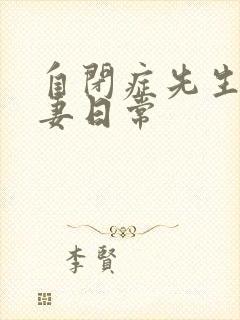 自閉症先生
妻日常
李賢